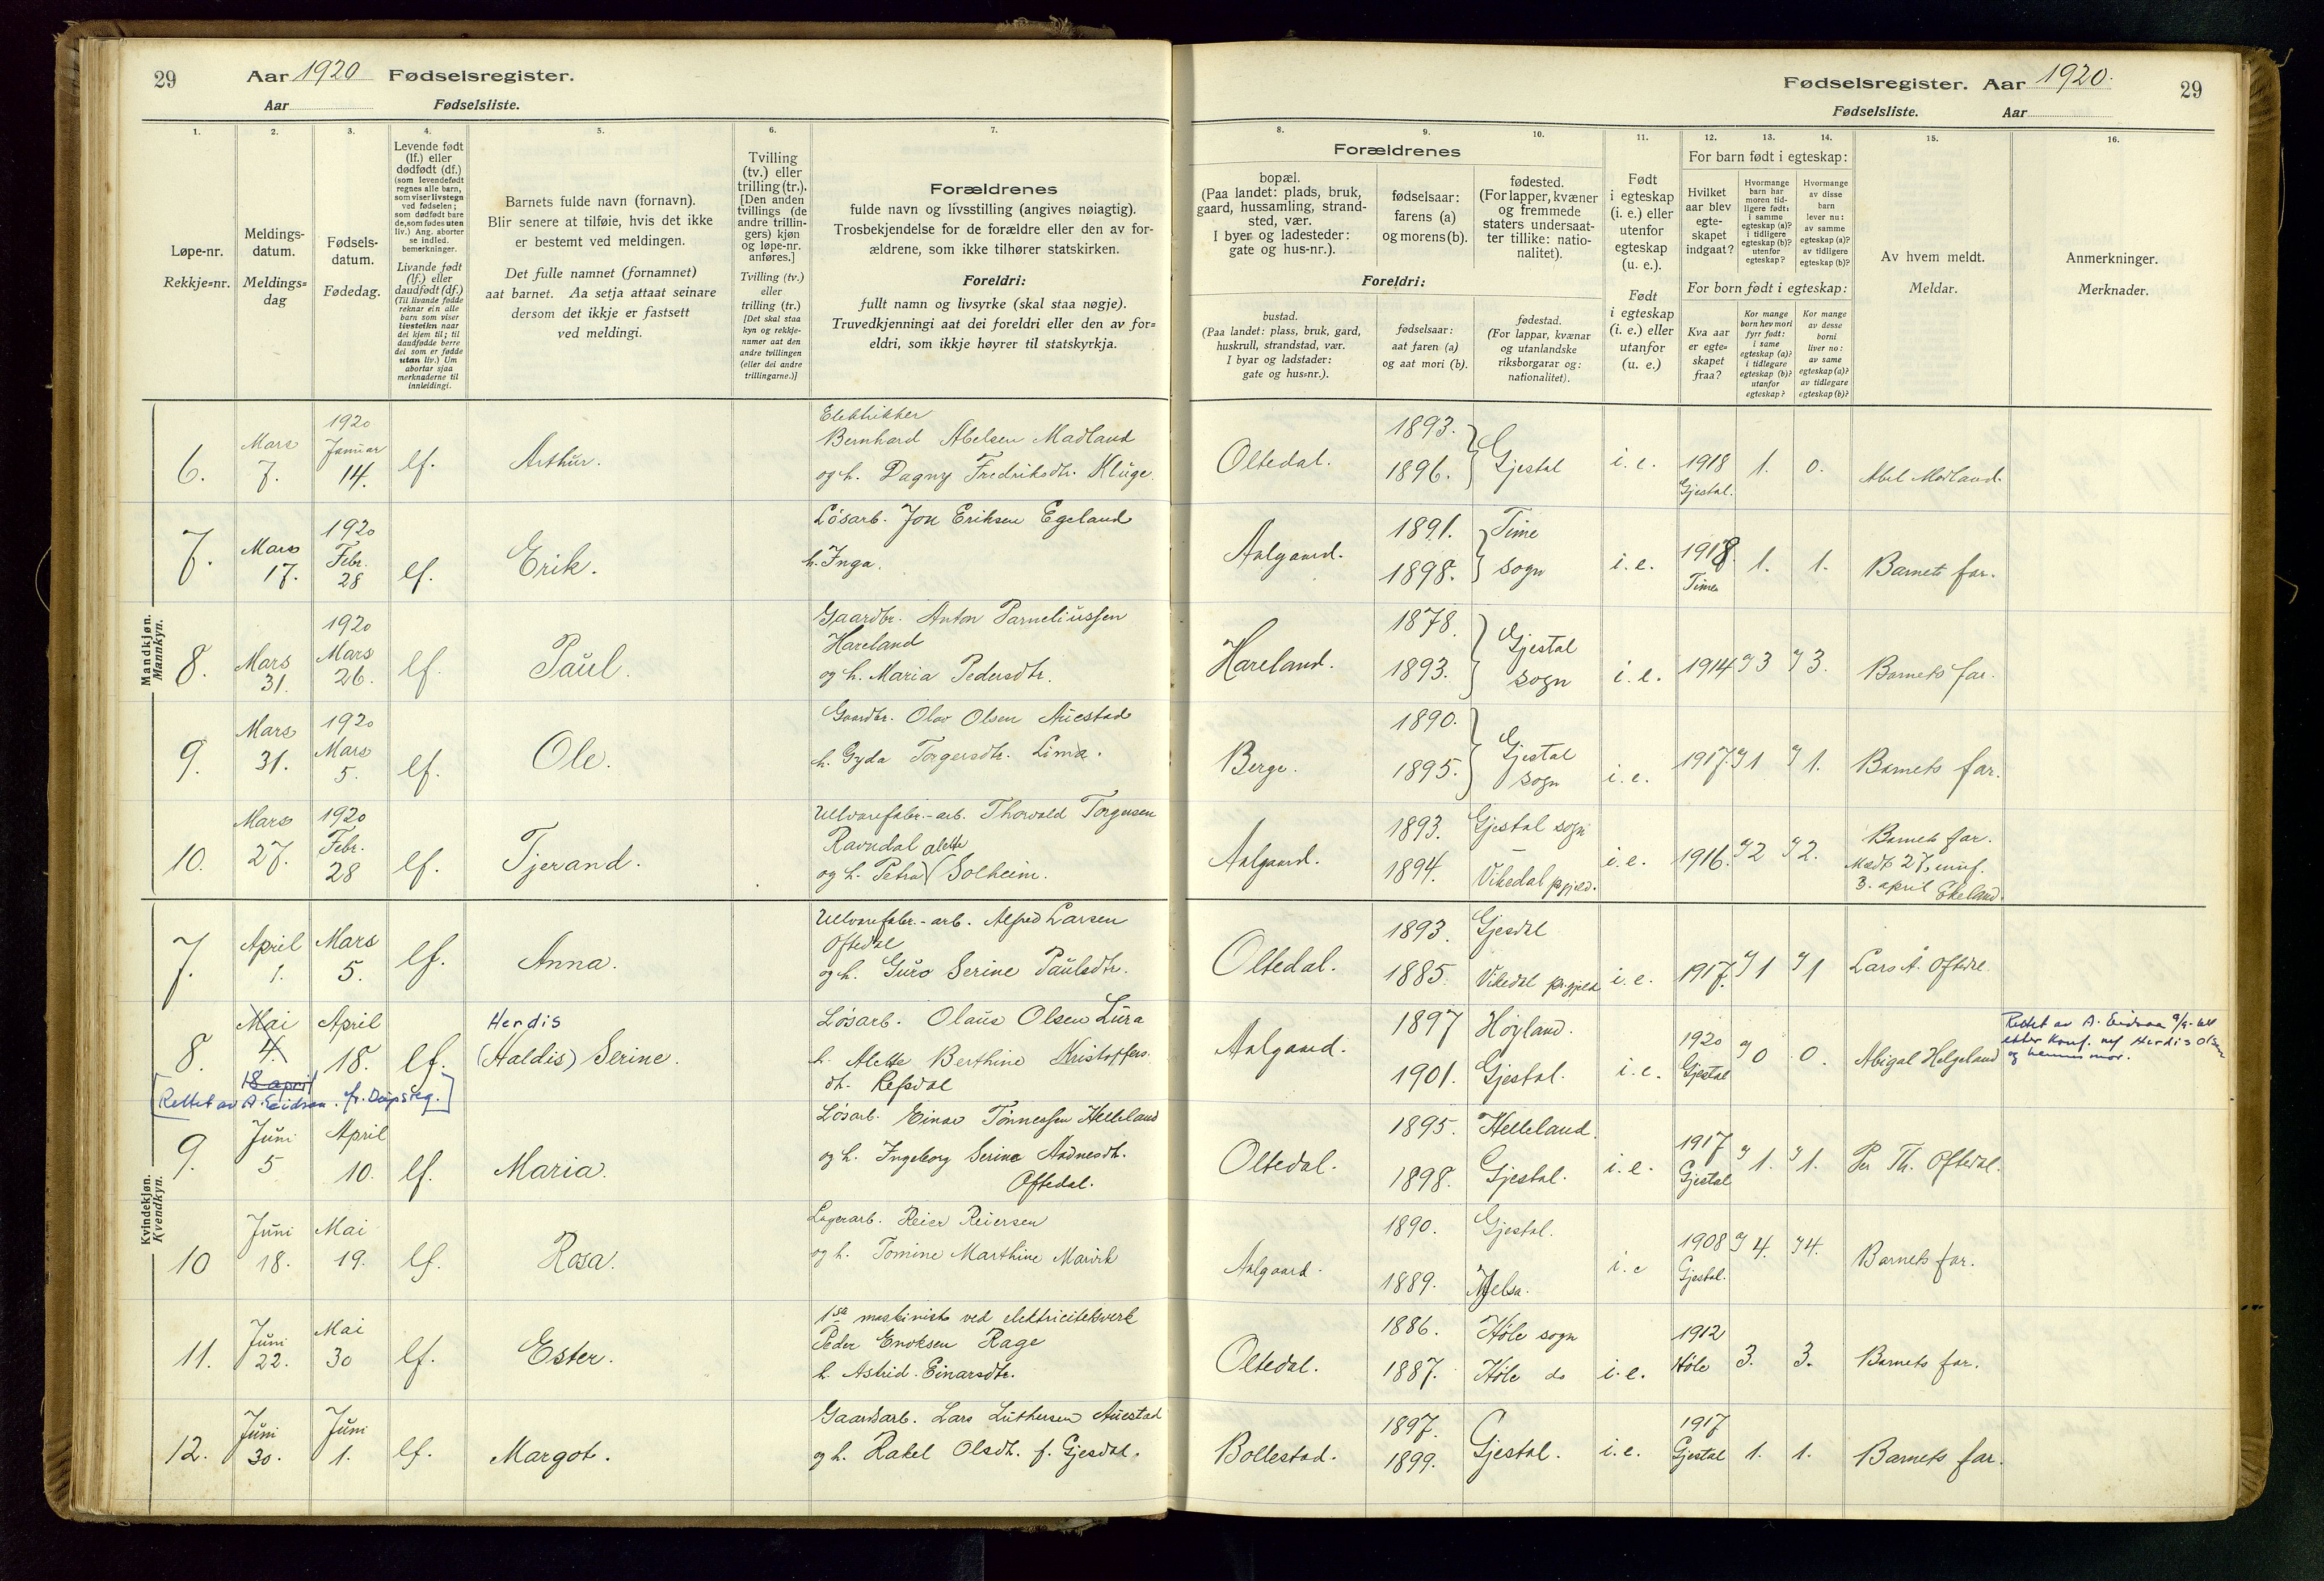 29 Aar 1920 Fødselsregister.
Aar Fødselsliste.
1.
2.
3.
4.
5.
6.
7.
Løpe-nr.
Rekkje=nr.
Meldings-
datum.
Meldings=
dag
Fødsels-
datum.
Fødedag.
Levende født
(lf.) eller
dødfødt (df.)
(som levendefødt
regnes alle barn,
som viser livstegn
ved fødselen;
som dødfødt bare
de, som fødes uten
liv.) Ang. aborter
se indled.
bemerkninger.
Livande født
(lf.) eller
daudfødt (df.)
(Til livande fødde
reknar ein alle
barn som viser
livsteikn naar
dei kjem til; til
daudfødde berre
dei som er fødde
utan liv.) Um
abortar sjaa
merknaderne til
innleidingi.
Barnets fulde navn (fornavn).
Blir senere at tilføie, hvis det ikke
er bestemt ved meldingen.
Det fulle namnet (fornamnet)
aat barnet. Aa setja attaat seinare
dersom det ikkje er fastsett
ved meldingi.
Tvilling
(tv.) eller
trilling (tr.).
[Den anden
tvillings (de
andre trillin-
gers) kjøn
og løpe-nr.
anføres.]
Tvilling (tv.)
eller
trilling (tr.)
[Det skal staa
kyn og rekkje-
numer aat den
andre tvillingen
(eller dei andre
trillingarne.)]
Forældrenes
fulde navn og livsstilling (angives nøiagtig).
Trosbekjendelse for de forældre eller den av for-
ældrene, som ikke tilhører statskirken.
Foreldri:
fullt namn og livsyrke (skal staa nøgje).
Truvedkjenningi aat dei foreldri eller den av for=
eldri, som ikkje høyrer til statskyrkja.
Mandkjøn.
Mannkyn.
6. Mars 7. 1920 Januar 14. lf. Arthur.
Elektriker
Bernhard Abelsen Madland
og h. Dagny Fredriksdtr. Kluge.
7. Mars 17. 1920 Febr. 28 lf. Erik.
Løsarb. Jon Eriksen Egeland
h. Inga.
8. Mars 31. 1920 Mars 26. lf. Paul.
Gaardbr. Anton Parneliussen
Hareland
og h. Maria Pedersdtr.
9. Mars 31. 1920 Mars 5. lf. Ole.
Gaardbr. Olav Olsen Auestad
h. Gyda Torgersdtr. Lima.
10. Mars 27. 1920 Febr. 28 lf. Tjerand.
Ullvarefabr.-arb. Thorvald Torgersen
Ravndal alette
og h. Petra ( Solheim.
Kvindekjøn.
Kvendkyn.
7. April 1. Mars 5. lf. Anna.
Ullvarefabr.-arb. Alfred Larsen
Oftedal
og h. Guro Serine Paulsdtr.
8. Mai 4. April 18. lf. Herdis
(Haldis) Serine.
18 april
[Rettet av A. Eidsaa. fr. Dåpsteg.]
Løsarb. Olaus Olsen Lura
h. Alette Berthine Kristoffers
dtr. Refsdal
9. Juni 5 April 10. lf. Maria.
Løsarb. Einar Tønnessen Helleland
og h. Ingeborg Serine Aadnesdtr.
Oftedal.
10 Juni 18. Mai 19. lf. Rosa.
Lagerarb. Reier Reiersen
og h. Tomine Marthine Marvik
11. Juni 22. Mai 30 lf. Ester.
1ste maskinist ved elektricitetsverk
Peder Enoksen Rage
h. Astrid Einarsdtr.
12. Juni 30. Juni 1. lf. Margot.
Gaardarb. Lars Luthersen Auestad
og h. Rakel Olsdtr. f. Gjesdal.
Fødselsregister. Aar 1920. 29
Fødselsliste. Aar
8.
9.
10.
11.
12.
13.
14.
15.
16.
Forældrenes
bopæl.
(Paa landet: plads, bruk,
gaard, hussamling, strand-
sted, vær.
I byer og ladesteder:
gate og hus-nr.).
fødselsaar:
farens (a)
og morens (b).
fødested.
(For lapper, kvæner
og fremmede
staters undersaat-
ter tillike: natio-
nalitet).
Foreldri:
bustad.
(Paa landet: plass, bruk, gard,
huskrull, strandstad, vær.
I byar og ladstader:
gate og hus=nr.).
fødselsaar:
aat faren (a)
og aat mori (b).
fødestad.
(For lappar, kvænar
og utanlandske
riksborgarar og:
nationalitet).
Født
i egteskap
(i. e.) eller
utenfor
egteskap
(u. e.).
Født
i egteskap
(i. e.) eller
utanfor
(u. e.)
For barn født i egteskap:
Hvilket
aar blev
egte-
skapet
indgaat?
Hvormange
barn har
moren tid-
ligere født:
i samme
egteskap (a)?
i tidligere
egteskap (b)?
utenfor
egteskap?
Hvormange
av disse
barn
lever nu:
av samme
egteskap (a)?
av tidligere
egteskap (b)?
For born født i egteskap:
Kva aar
er egte=
skapet
fraa?
Kor mange
born hev mori
fyrr født:
i same
egteskap (a)?
i tidlegare
egteskap (b)?
utanfor
egteskap?
Kor mange
av desse
borni
liver no:
av same
egteskap (a)?
av tidlegare
egteskap (b)?
Av hvem meldt.
Meldar.
Anmerkninger.
Merknader.
Oltedal. 1893. 1896. Gjestal i. e. 1918 Gjestal. 1. 0. Abel Madland.
Aalgaard. 1891. 1898. Time sogn i. e. 1918. Time 1. 1. Barnets far.
Hareland. 1878. 1893. Gjestal sogn i. e. 1914 3 3. Barnets far.
Berge. 1890. 1895. Gjestal sogn i. e. 1917. 1 1. Barnets far.
Aalgaard. 1893. 1894. Gjestal sogn - Vikedal prgjeld. i. e. 1916. 2 2. Barnets far.
3. april Ekeland.
Oltedal. 1893. 1885. Gjesdal Vikedal pr.gjeld i. e. 1917. 1 1 Lars A. Oftedal.
Aalgaard. 1897 1901. Høyland. Gjestal. i. e. 1920 Gjestal 0 0. Abigal Helgeland
Rettet av A. Eidsaa
etter konf. m/ Herdis Olsen
og hennes mor.
Oltedal. 1895. 1898. Helleland. Gjestal. i. e. 1917 Gjestal 1. 1. Per Th. Oftedal.
Aalgaard. 1890. 1889. Gjestal. Jelsa. i. e 1908 Gjestal. 4. 4. Barnets far.
Oltedal. 1886. 1887. Høle sogn Høle do i. e. 1912 Høle 3. 3. Barnets far.
Bollestad. 1897. 1899. Gjestal. i. e. 1917 Gjestal 1. 1. Barnets far.